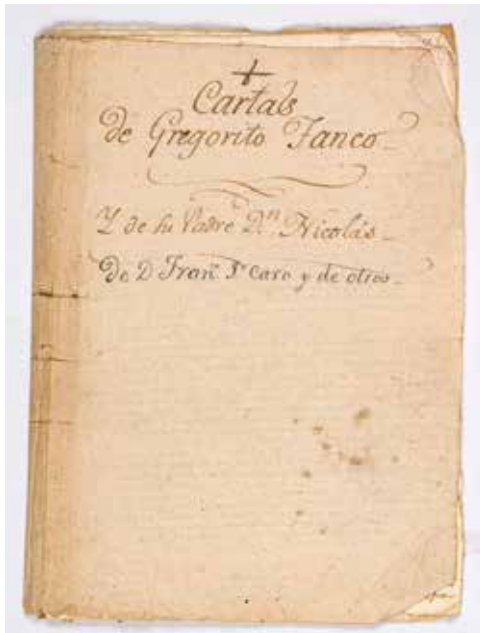 +
Cartas
de Gregorito Tanco
Y de su Padre Dn. Nicolás
De D Fran.co Jr Caro y de otros